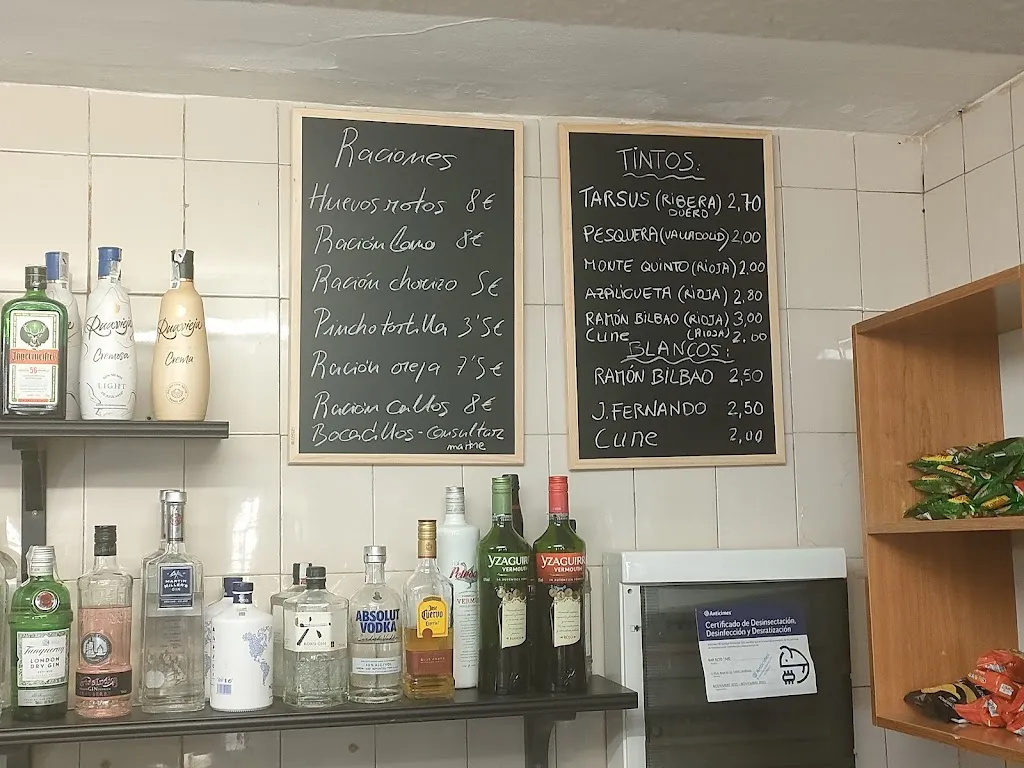 Raciones
Huevos rotos 8€
Ración Lomo 8€
Ración chorizo 5€
Pincho tortilla 3'5€
Ración oreja 7'5€
Ración callos 8€
Bocadillos - consultar
maitre
TINTOS:
TARSUS (RIBERA) 2,70
DUERO
PESQUERA (VALLADOLID) 2,00
MONTE QUINTO (RIOJA) 2,00
AZPILICUETA (RIOJA) 2,80
RAMÓN BILBAO (RIOJA) 3,00
Cune (RIOJA) 2,00
BLANCOS:
RAMÓN BILBAO 2,50
J. FERNANDO 2,50
Cune 2,00
Jägermeister
56
Ruavieja
Cremosa
LIGHT
Ruavieja
Crema
Tanqueray
LONDON
DRY GIN
GIN
MARTIN
MILLER'S
GIN
ROKU
ABSOLUT
VODKA
Jose
Cuervo
YZAGUIRRE
VERMOUTH
YZAGUIRRE
VERMOUTH
Anticimex
Certificado de Desinsectación,
Desinfección y Desratización